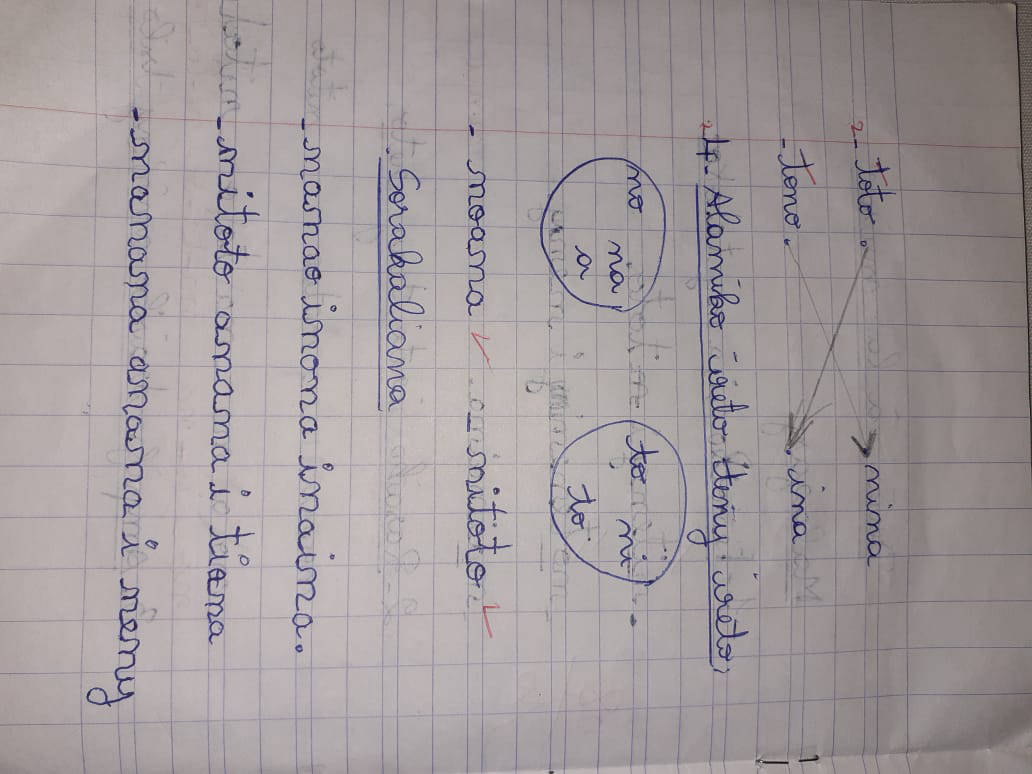 2 - toto . . nina
- tono . . ina
4 - Alamibo ireto teny ireto
no na a to ni to
- noana - nitoto
Sorabaliana
- manao inona inaina.
- mitoto amana i tiana
- manana amana i neny